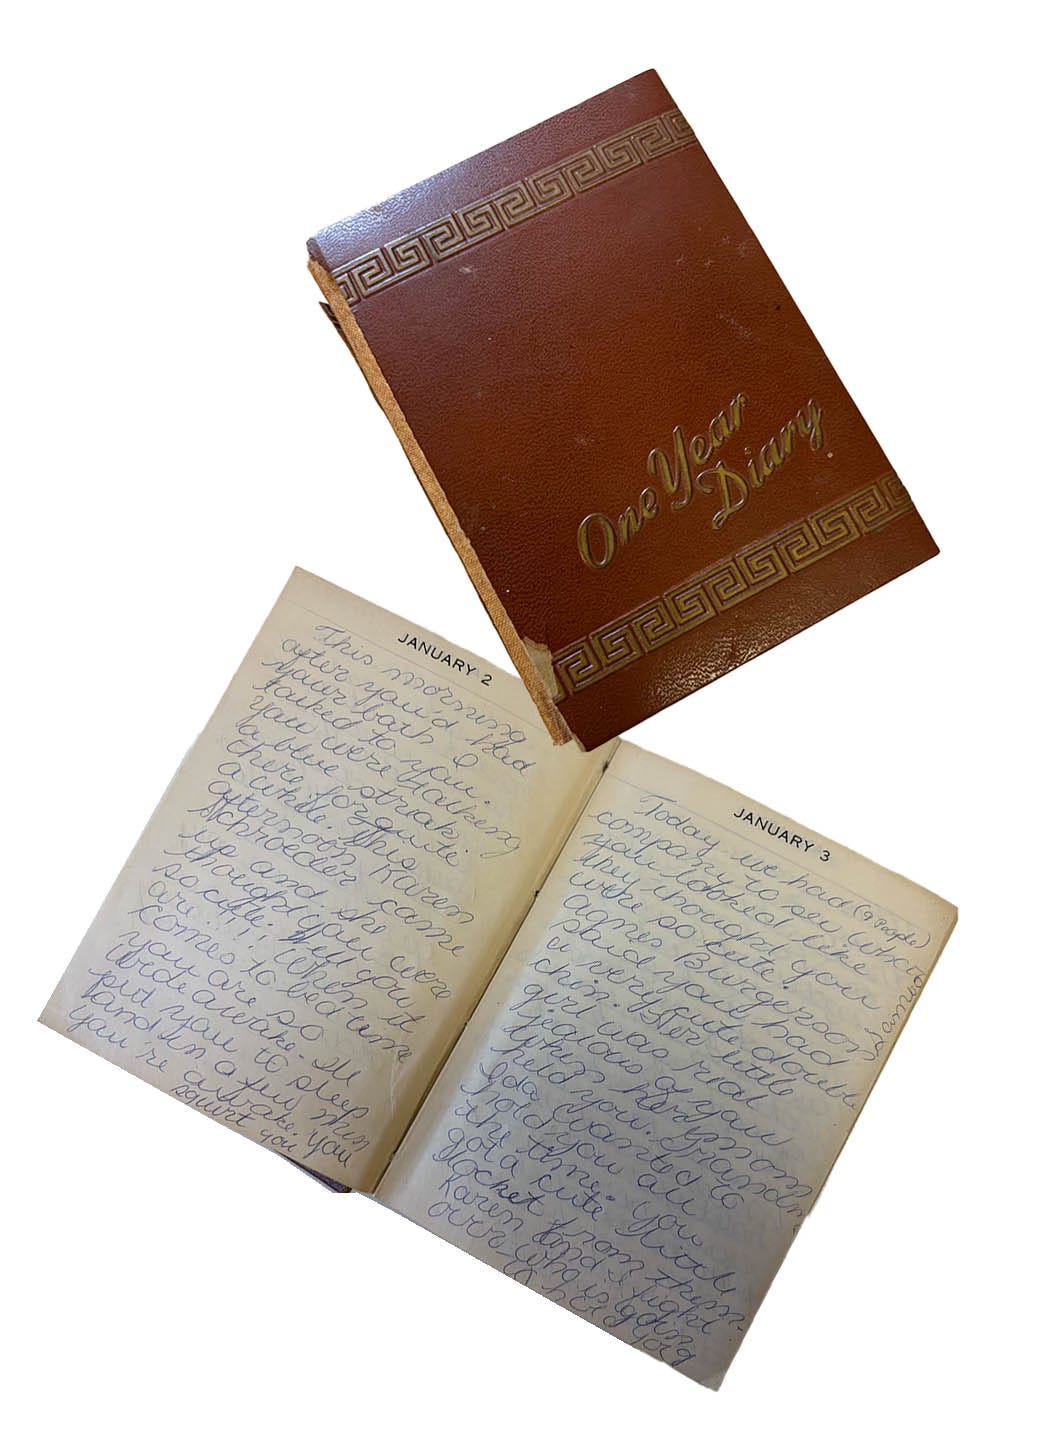 One Year
Diary
JANUARY 2
This morning
after you'd had
your bath I
talked to you.
You were talking
a blue streak
there for quite
a while. This
afternoon Karen
Schroeder came
up and she
thought you were
so cute!! Well you
are!! When it
comes to bedtime
you are so
wide awake - I'll
put you to sleep
and in a few min
you're awake. You
squirt you
JANUARY 3
Today we had (9 People)
company to see you
you looked like
they thought you
were so cute.
Agnes Burgeson
said you had
a very cute double
chin. Her little
girl was real
jealous of you
when her mom
held you. Grandma
Ida wanted to
hold you all
the time. You
got a cute little
from them.
Karen and I fight
over who is going
to hold you